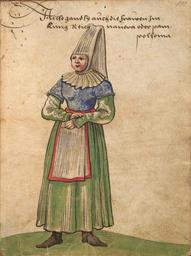 Also gand sy auch die frawen Im
Kunig Reich nauera oder pam
pollonia